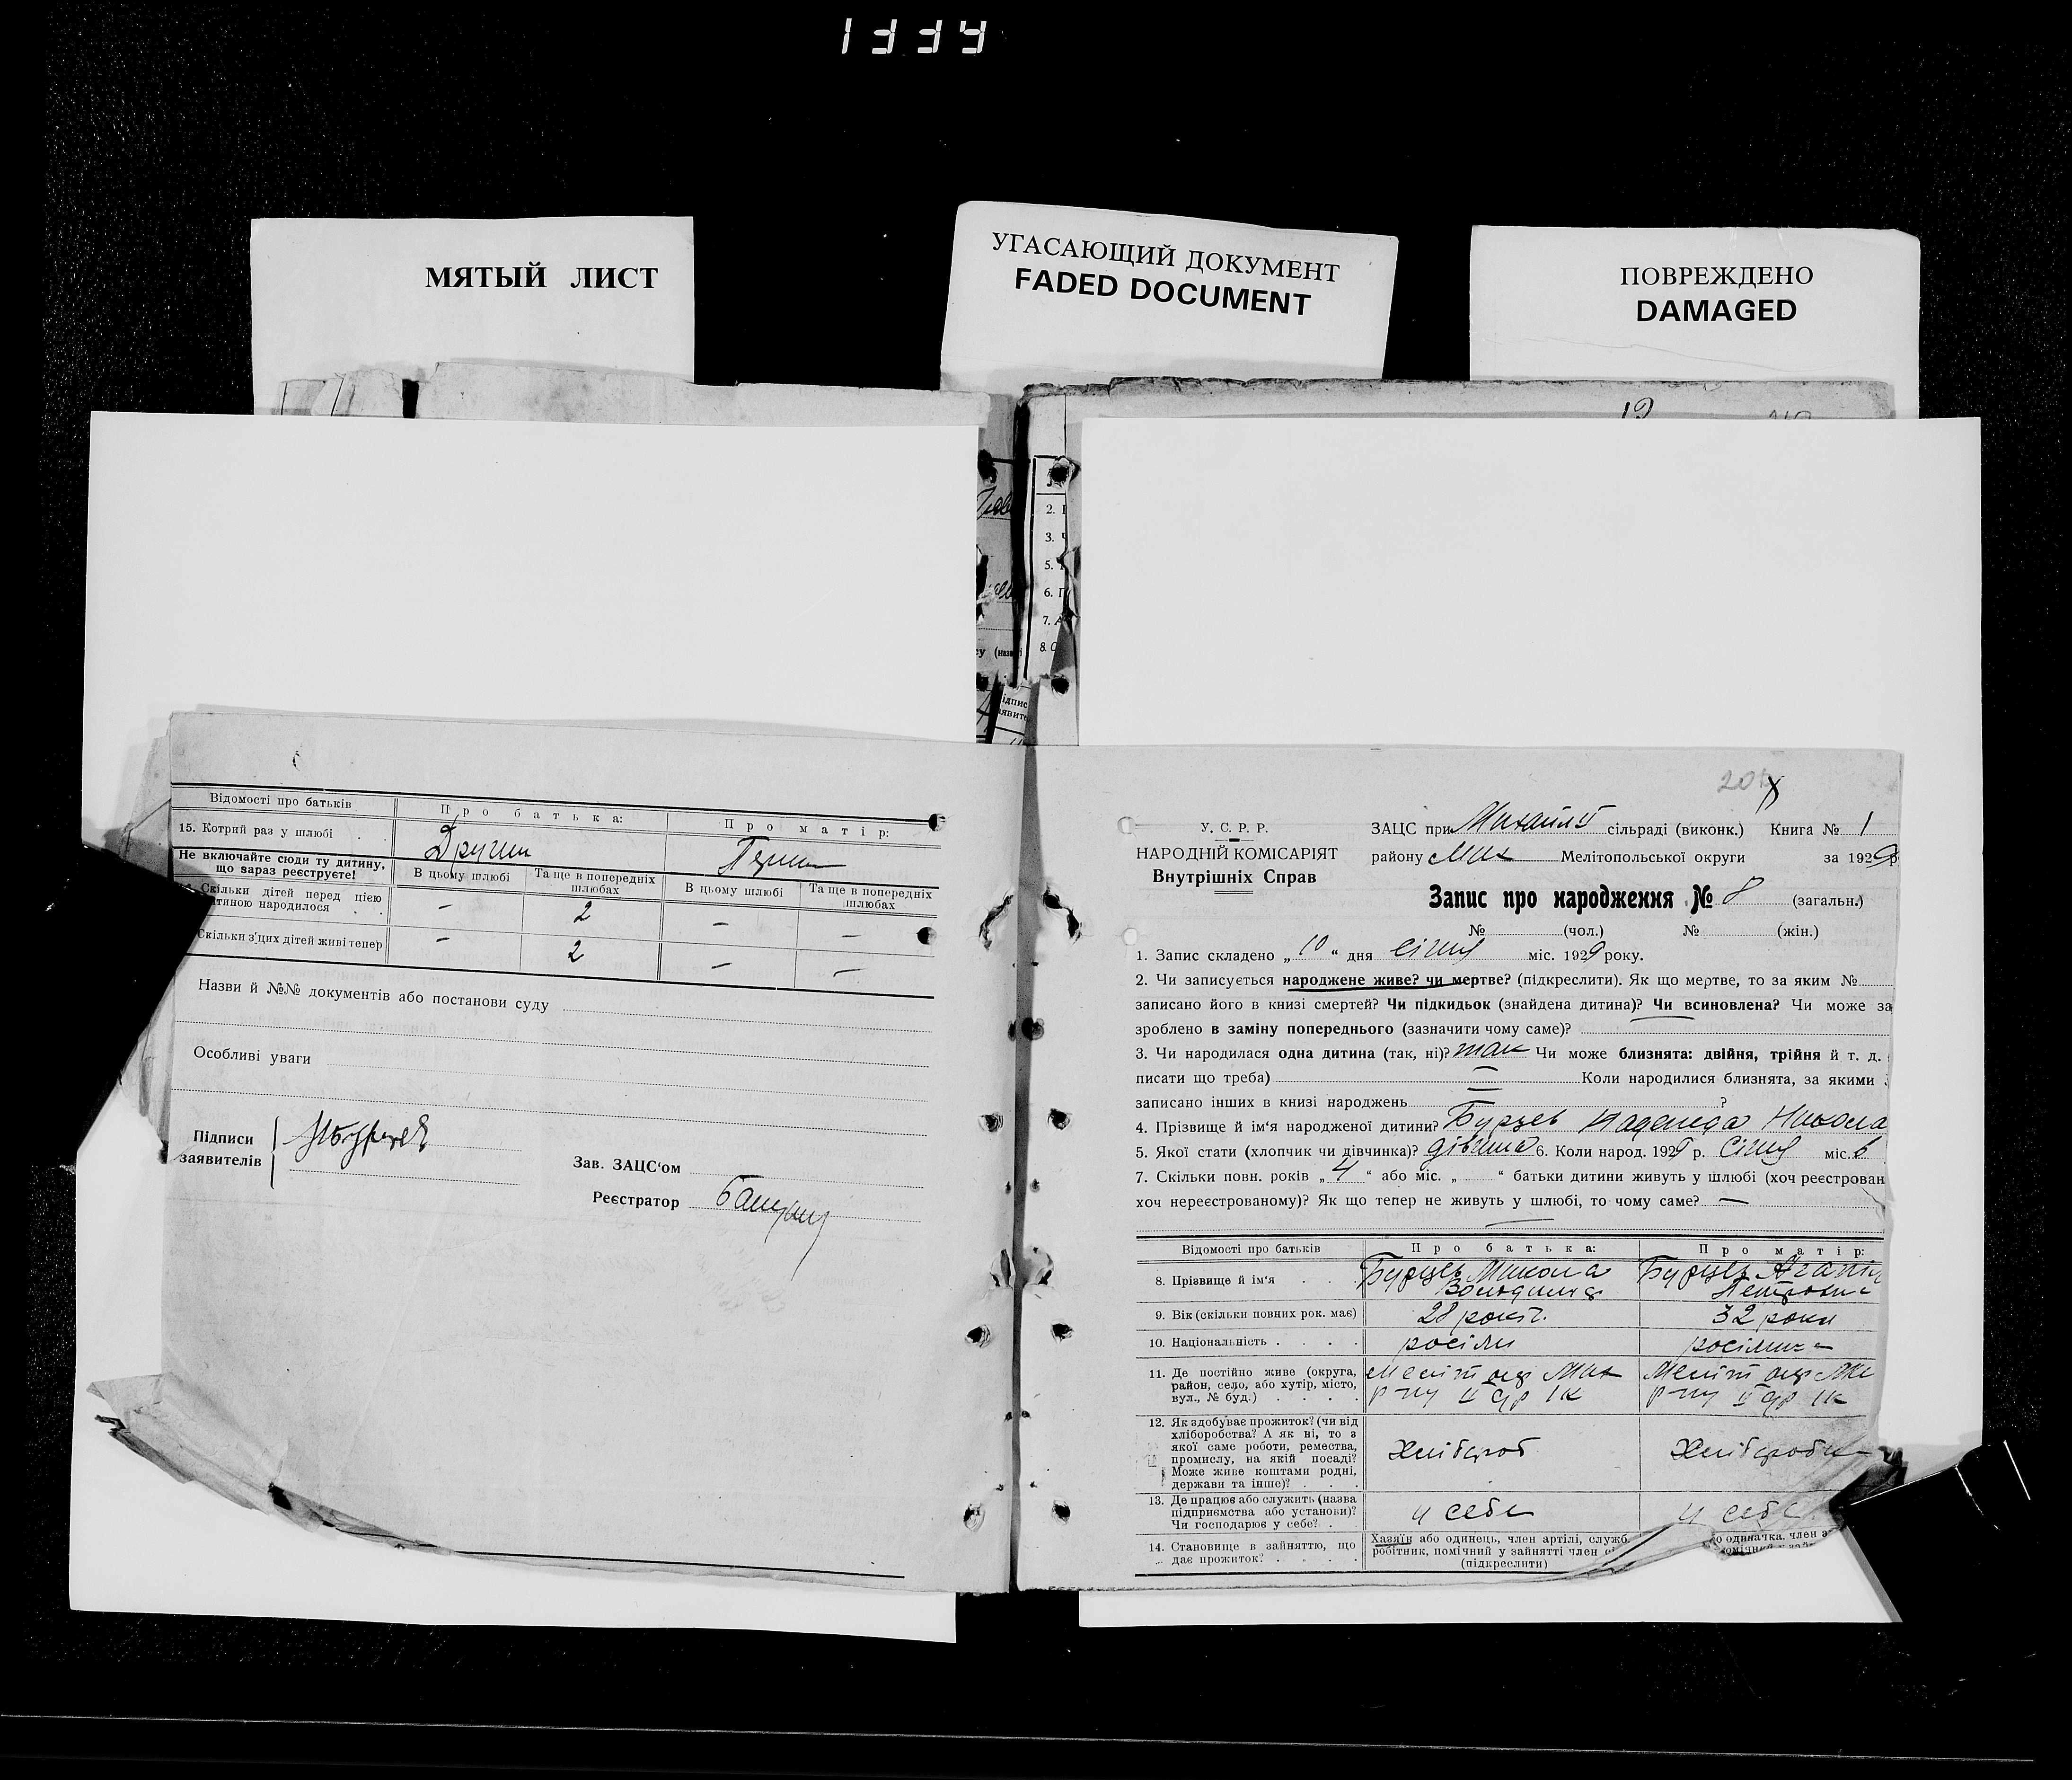 МЯТЫЙ ЛИСТ
УГАСАЮЩИЙ ДОКУМЕНТ
FADED DOCUMENT
ПОВРЕЖДЕНО
DAMAGED
2.
3.
5.
6. Г
7. А
8. О
Відомості про батьків
Про батька:
Про матір:
15. Котрий раз у шлюбі
Други
Перши
Не включайте сюди ту дитину,
що зараз реєструєте!
В цьому шлюбі
Та ще в попередніх
шлюбах
В цьому шлюбі
Та ще в попередніх
шлюбах
Скільки дітей перед цією
тиною народилося
–
2
–
–
Скільки з'цих дітей живі тепер
–
2
–
–
Назви й №№ документів або постанови суду
Особливі уваги
Підписи
заявителів
Зав. ЗАЦС'ом
Реєстратор
У. С. Р. Р.
НАРОДНІЙ КОМІСАРІЯТ
Внутрішніх Справ
ЗАЦС при Михайл II сільраді (виконк.) Книга № 1
району Мих Мелітопольської округи за 1929 р
Запис про народження № 8 (загальн.)
№ (чол.) № (жін.)
1. Запис складено „ 10 “ дня січня міс. 1929 року.
2. Чи записується народжене живе? чи мертве? (підкреслити). Як що мертве, то за яким №
записано його в книзі смертей? Чи підкидьок (знайдена дитина)? Чи всиновлена? Чи може за
зроблено в заміну попереднього (зазначити чому саме)?
3. Чи народилася одна дитина (так, ні)? так Чи може близнята: двійня, трійня й т. д.
писати що треба) Коли народилися близнята, за якими
записано інших в книзі народжень ?
4. Прізвище й ім'я народженої дитини? Бурцев Надежда Никола
5. Якої стати (хлопчик чи дівчинка)? дівчина 6. Коли народ. 1929 р. Січня міс. 6
7. Скільки повн. років „ 4 “ або міс. „ “ батьки дитини живуть у шлюбі (хоч реєстрован
хоч нереєстрованому)? Як що тепер не живуть у шлюбі, то чому саме? —
Відомості про батьків
Про батька:
Про матір:
8. Прізвище й ім'я
Бурцев Микола
Володимир
Бурцев Агапія
Петровн
9. Вік (скільки повних рок. має)
28 років.
32 роки
10. Національність
росіян
росіянка
11. Де постійно живе (округа,
район, село, або хутір, місто,
вул., № буд.)
Меліт окр Мих
р-ну II
Меліт окр Ми
р-ну II
12. Як здобуває прожиток? (чи від
хліборобства? А як ні, то з
якої саме роботи, ремества,
промислу, на якій посаді?
Може живе коштами родні,
держави та інше)?
Хлібороб
Хлібороб
13. Де працює або служить (назва
підприємства або установи)?
Чи господарює у себе?
у себе
у себе
14. Становище в зайняттю, що
дає прожиток?
Хазяїн або одинець, член артілі, служб.
робітник, помічний у зайнятті член
(підкреслити)
о одиначка, член